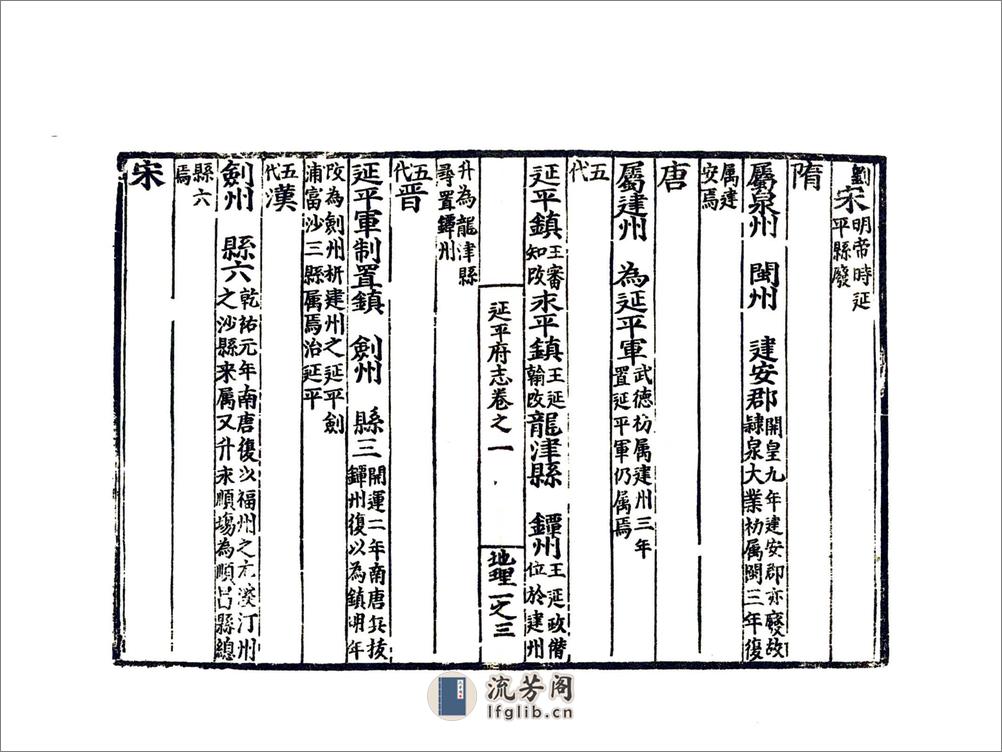 劉宋明帝時延平縣廢
隋
屬泉州 閩州 建安郡開皇九年建安郡亦廢故隸泉大業初属閩三年復
属建安焉
唐
屬建州 為延平軍武德初属建州三年置延平軍仍属焉
五代
延平鎮王審知改永平鎮王延翰改龍津縣 鐔州王延政僭位於建州
延平府志卷之一 地理一之三
升為龍津縣尋置鐔州
五代晉
延平軍制置鎮 劍州 縣三開運二年南唐兵拔鐔州復以為鎮明年
改為劍州析建州之延平劍浦富沙三縣属焉治延平
五代漢
劍州 縣六乾祐元年南唐復以福州之尤溪汀州之沙縣来属又升永順場為順昌縣總
縣六焉
宋
流芳阁
lfglib.cn